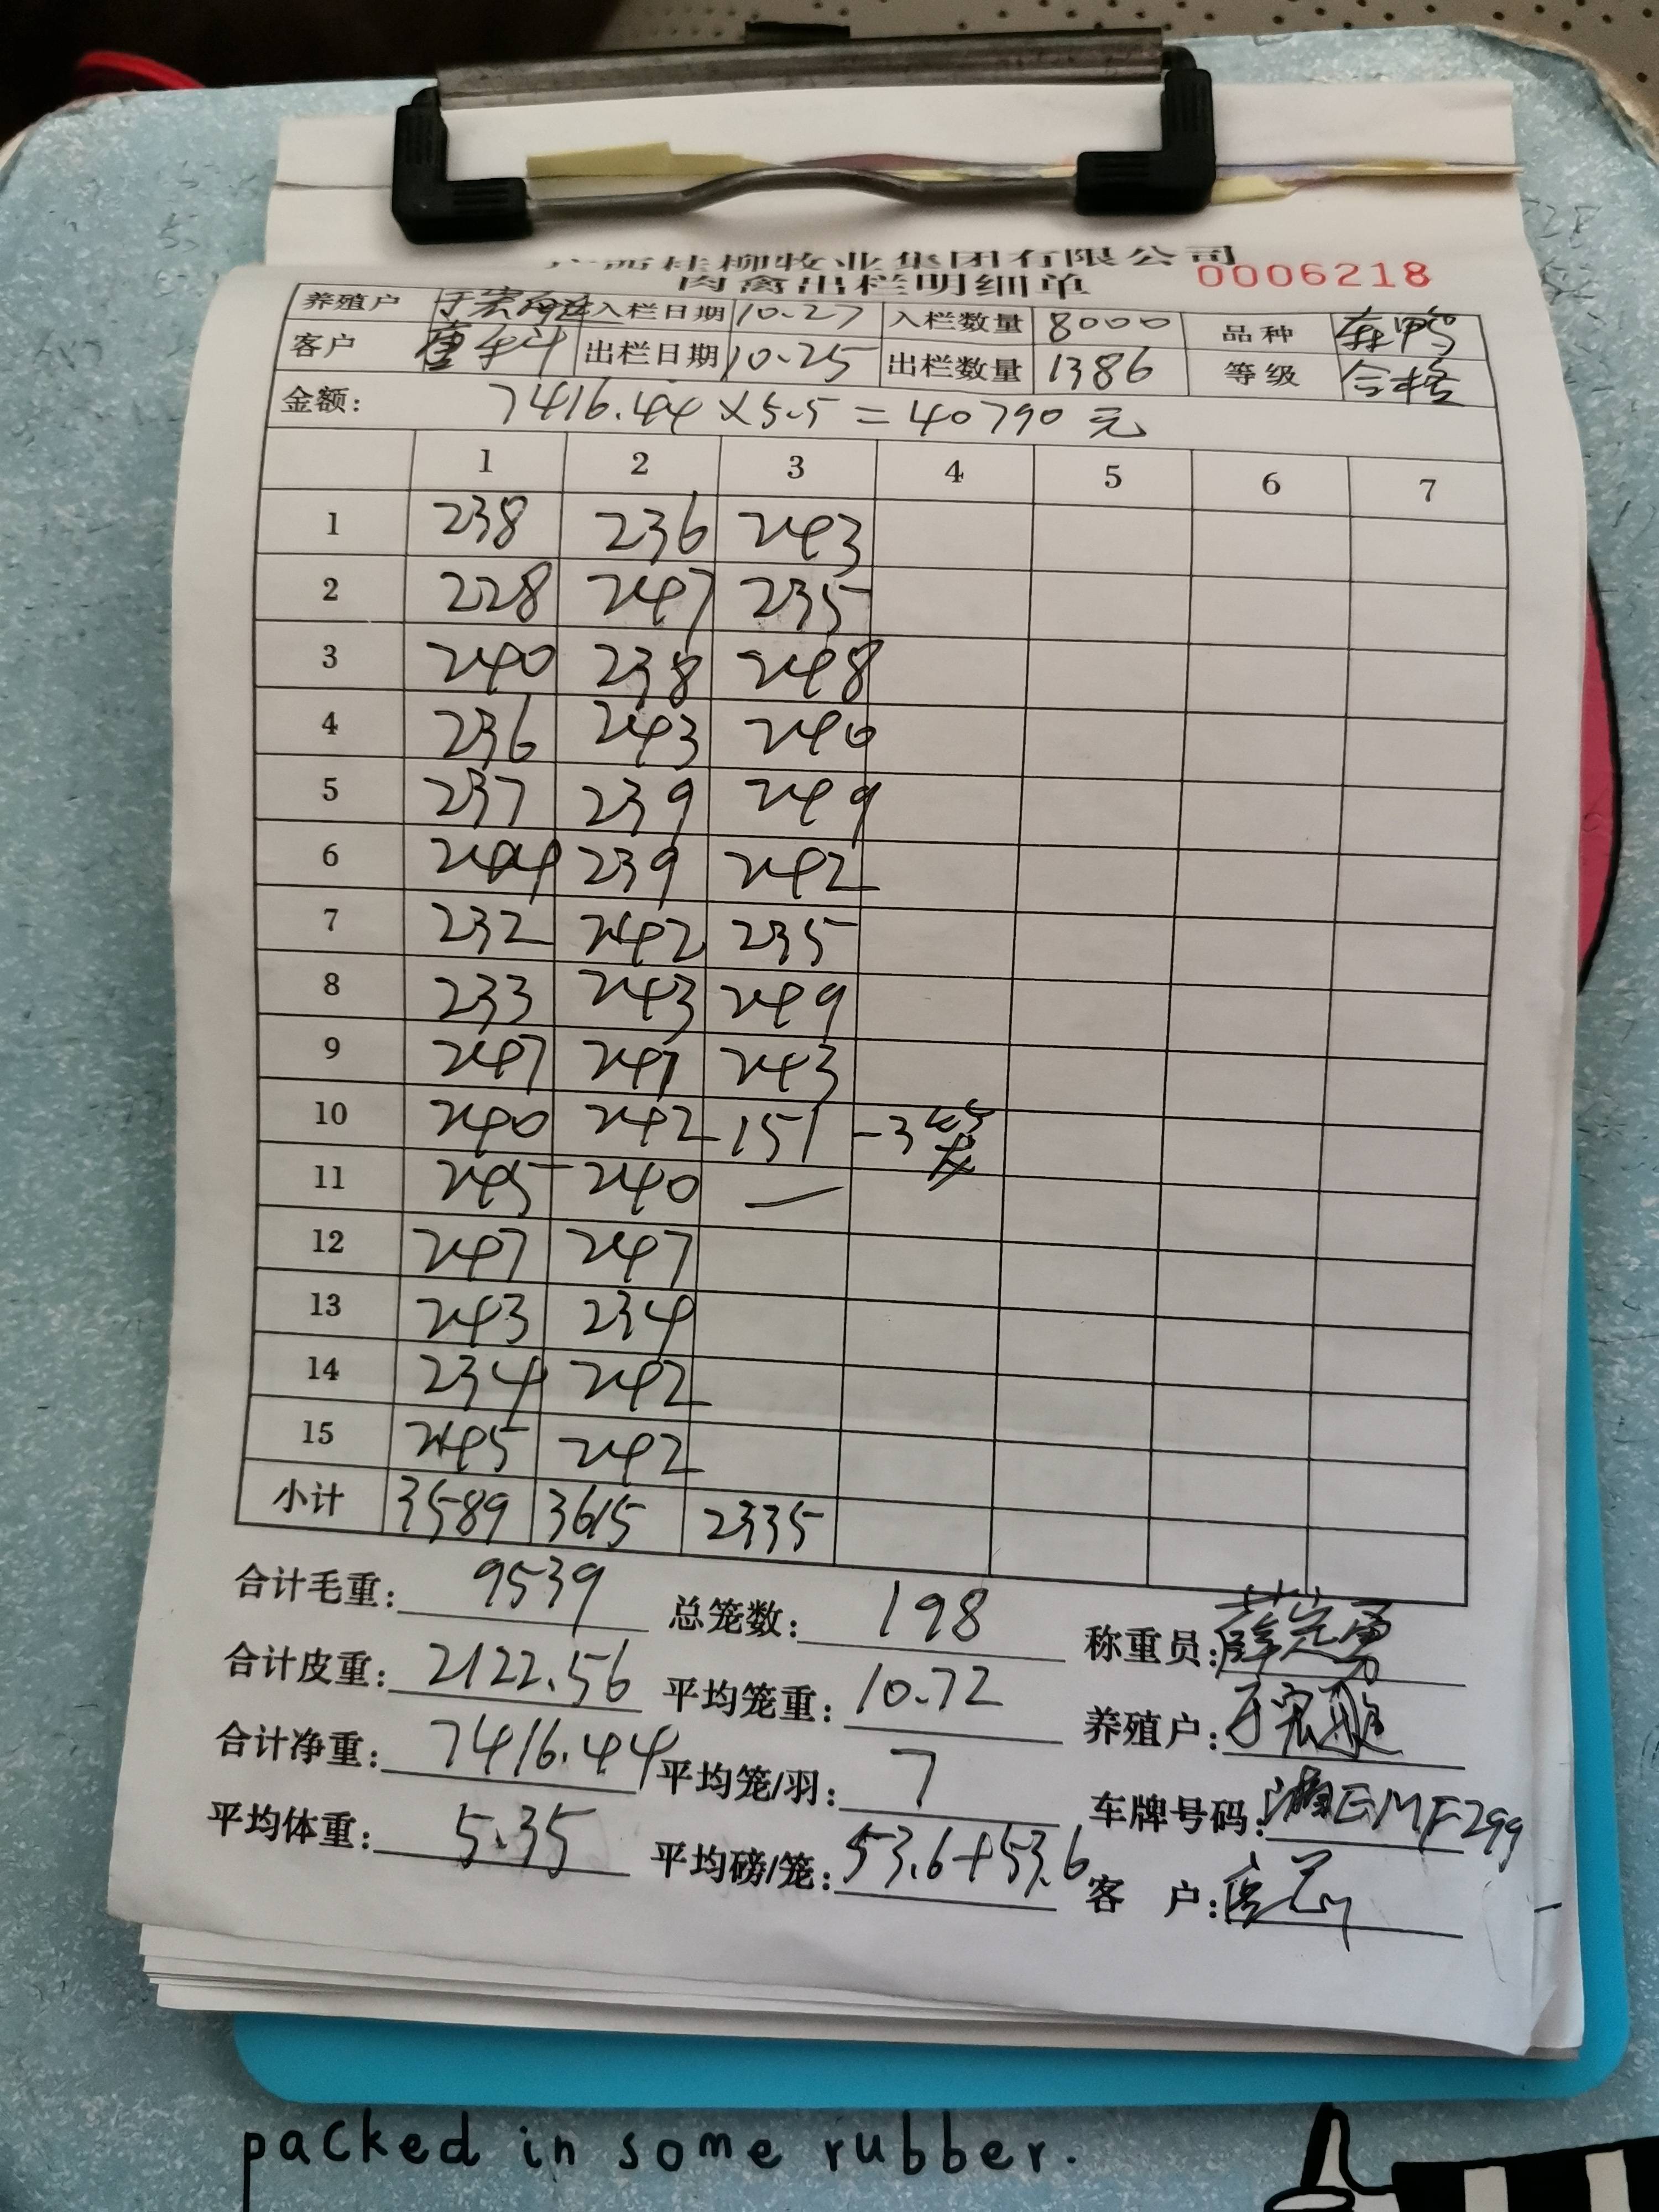 广西桂柳牧业集团有限公司
肉禽出栏明细单 0006218
养殖户 于宏 入栏日期 10.27 入栏数量 8000 品种
客户 唐 出栏日期 10.25 出栏数量 1386 等级 合格
金额: 7416.44×5.5=40790元
1 2 3 4 5 6 7
1 238 236 243
2 228 247 235
3 240 238 248
4 236 243 240
5 237 239 249
6 244 239 242
7 232 242 235
8 233 243 249
9 247 241 243
10 240 242 151 -3
11 245 240 —
12 247 247
13 243 234
14 234 242
15 245 242
小计 3589 3615 2335
合计毛重: 9539 总笼数: 198 称重员: 薛定勇
合计皮重: 2122.56 平均笼重: 10.72 养殖户: 于宏
合计净重: 7416.44 平均笼/羽: 7 车牌号码: 湘EMF299
平均体重: 5.35 平均磅/笼: 53.6+53.6 客 户:
packed in some rubber.